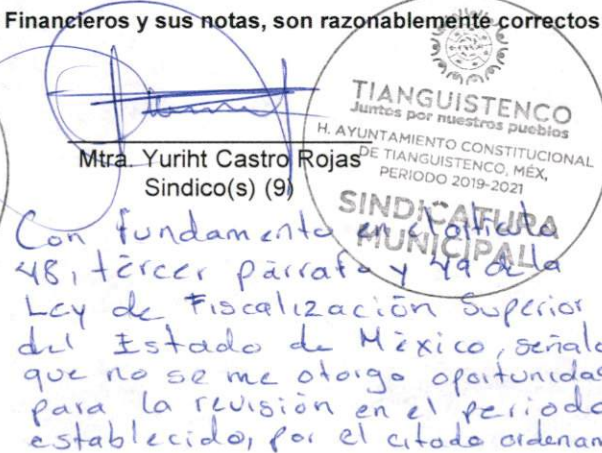 Financieros y sus notas, son razonablemente correctos
TIANGUISTENCO
Juntos por nuestros pueblos
H. AYUNTAMIENTO CONSTITUCIONAL
DE TIANGUISTENCO, MÉX,
PERIODO 2019-2021
SINDICATURA
MUNICIPAL
Mtra. Yuriht Castro Rojas
Sindico(s) (9)
Con fundamento en el artículo
48, tercer párrafo y 49 de la
Ley de Fiscalización Superior
del Estado de México, señalo
que no se me otorgo oportunidad
para la revisión en el periodo
establecido, por el citado ordenam